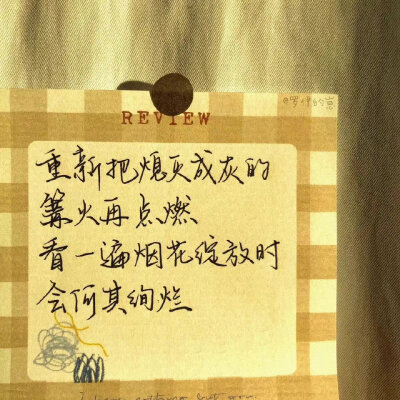 REVIEW
重新把熄灭成灰的
篝火再点燃
看一遍烟花绽放时
会何其绚烂